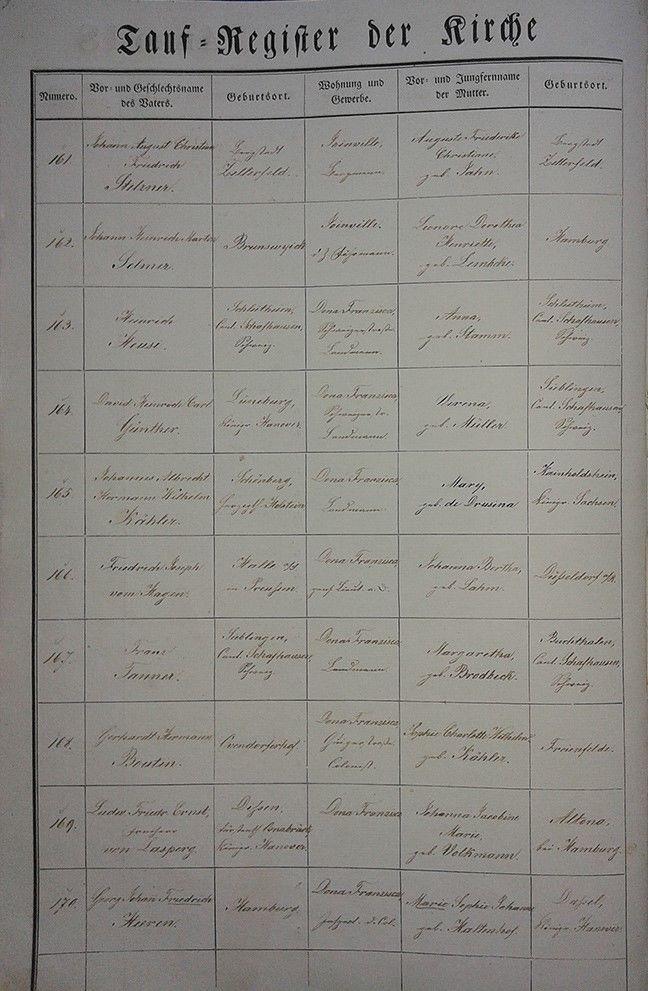 Tauf-Register der Kirche
Numero.
Vor- und Geschlechtsname
des Vaters.
Geburtsort.
Wohnung und
Gewerbe.
Vor- und Jungfernname
der Mutter.
Geburtsort.
161.
Johann August Christian
Friedrich
Stelzner.
Bergstadt
Zellerfeld.
Joinville,
Bergmann.
Auguste Friederike
Christiane,
geb. Jahn.
Bergstadt
Zellerfeld.
162.
Johann Heinrich Martin
Selmer.
Brunswyick
Joinville.
Leonore Dorothea
Henriette,
geb. Lembcke.
Hamburg
163.
Heinrich
Meusi.
Schleitheim,
Cant. Schafhausen,
Schweiz.
Dona Francisca,
Landmann.
Anna,
geb. Stamm.
Schleitheim,
Cant. Schafhausen,
Schweiz.
164.
David Heinrich Carl
Günther.
Lüneburg,
Königr. Hanover.
Dona Francisca,
Landmann.
Verena,
geb. Müller.
Sieblingen,
Cant. Schafhausen,
Schweiz.
165.
Johannes Albrecht
Hermann Wilhelm
Kähler.
Schönberg,
Herzogth. Holstein
Dona Francisca
Landmann.
Mary,
geb. de Drusina
Königr. Sachsen
166.
Friedrich Joseph
vom Hagen.
Halle a/S
in Preußen.
Dona Francisca,
Johanna Bertha,
geb. Lahm.
Düsseldorf a/R.
167.
Franz
Tanner.
Sieblingen,
Cant. Schafhausen,
Schweiz.
Dona Francisca
Landmann.
Margaretha,
geb. Brodbeck.
Buchthalen,
Cant. Schafhausen,
Schweiz.
168.
Gerhardt Hermann
Beuten.
Ovendorferhof.
Dona Francisca
Colonist.
Sophie Charlotte Wilhelmi
geb. Kähler.
Freienfelde.
169.
Ludw. Friedr. Ernst,
Freiherr
von Lasperg
Dissen,
Königr. Hanover.
Dona Francisca
Johanna Jacobine
Marie,
geb. Volkmann.
Altona,
bei Hamburg.
170.
Georg Johan Friedrich
Heeren.
Hamburg.
Dona Francisca
Marie Sophie Johanne
geb. Kaltenhof.
Dassel,
Königr. Hanover.